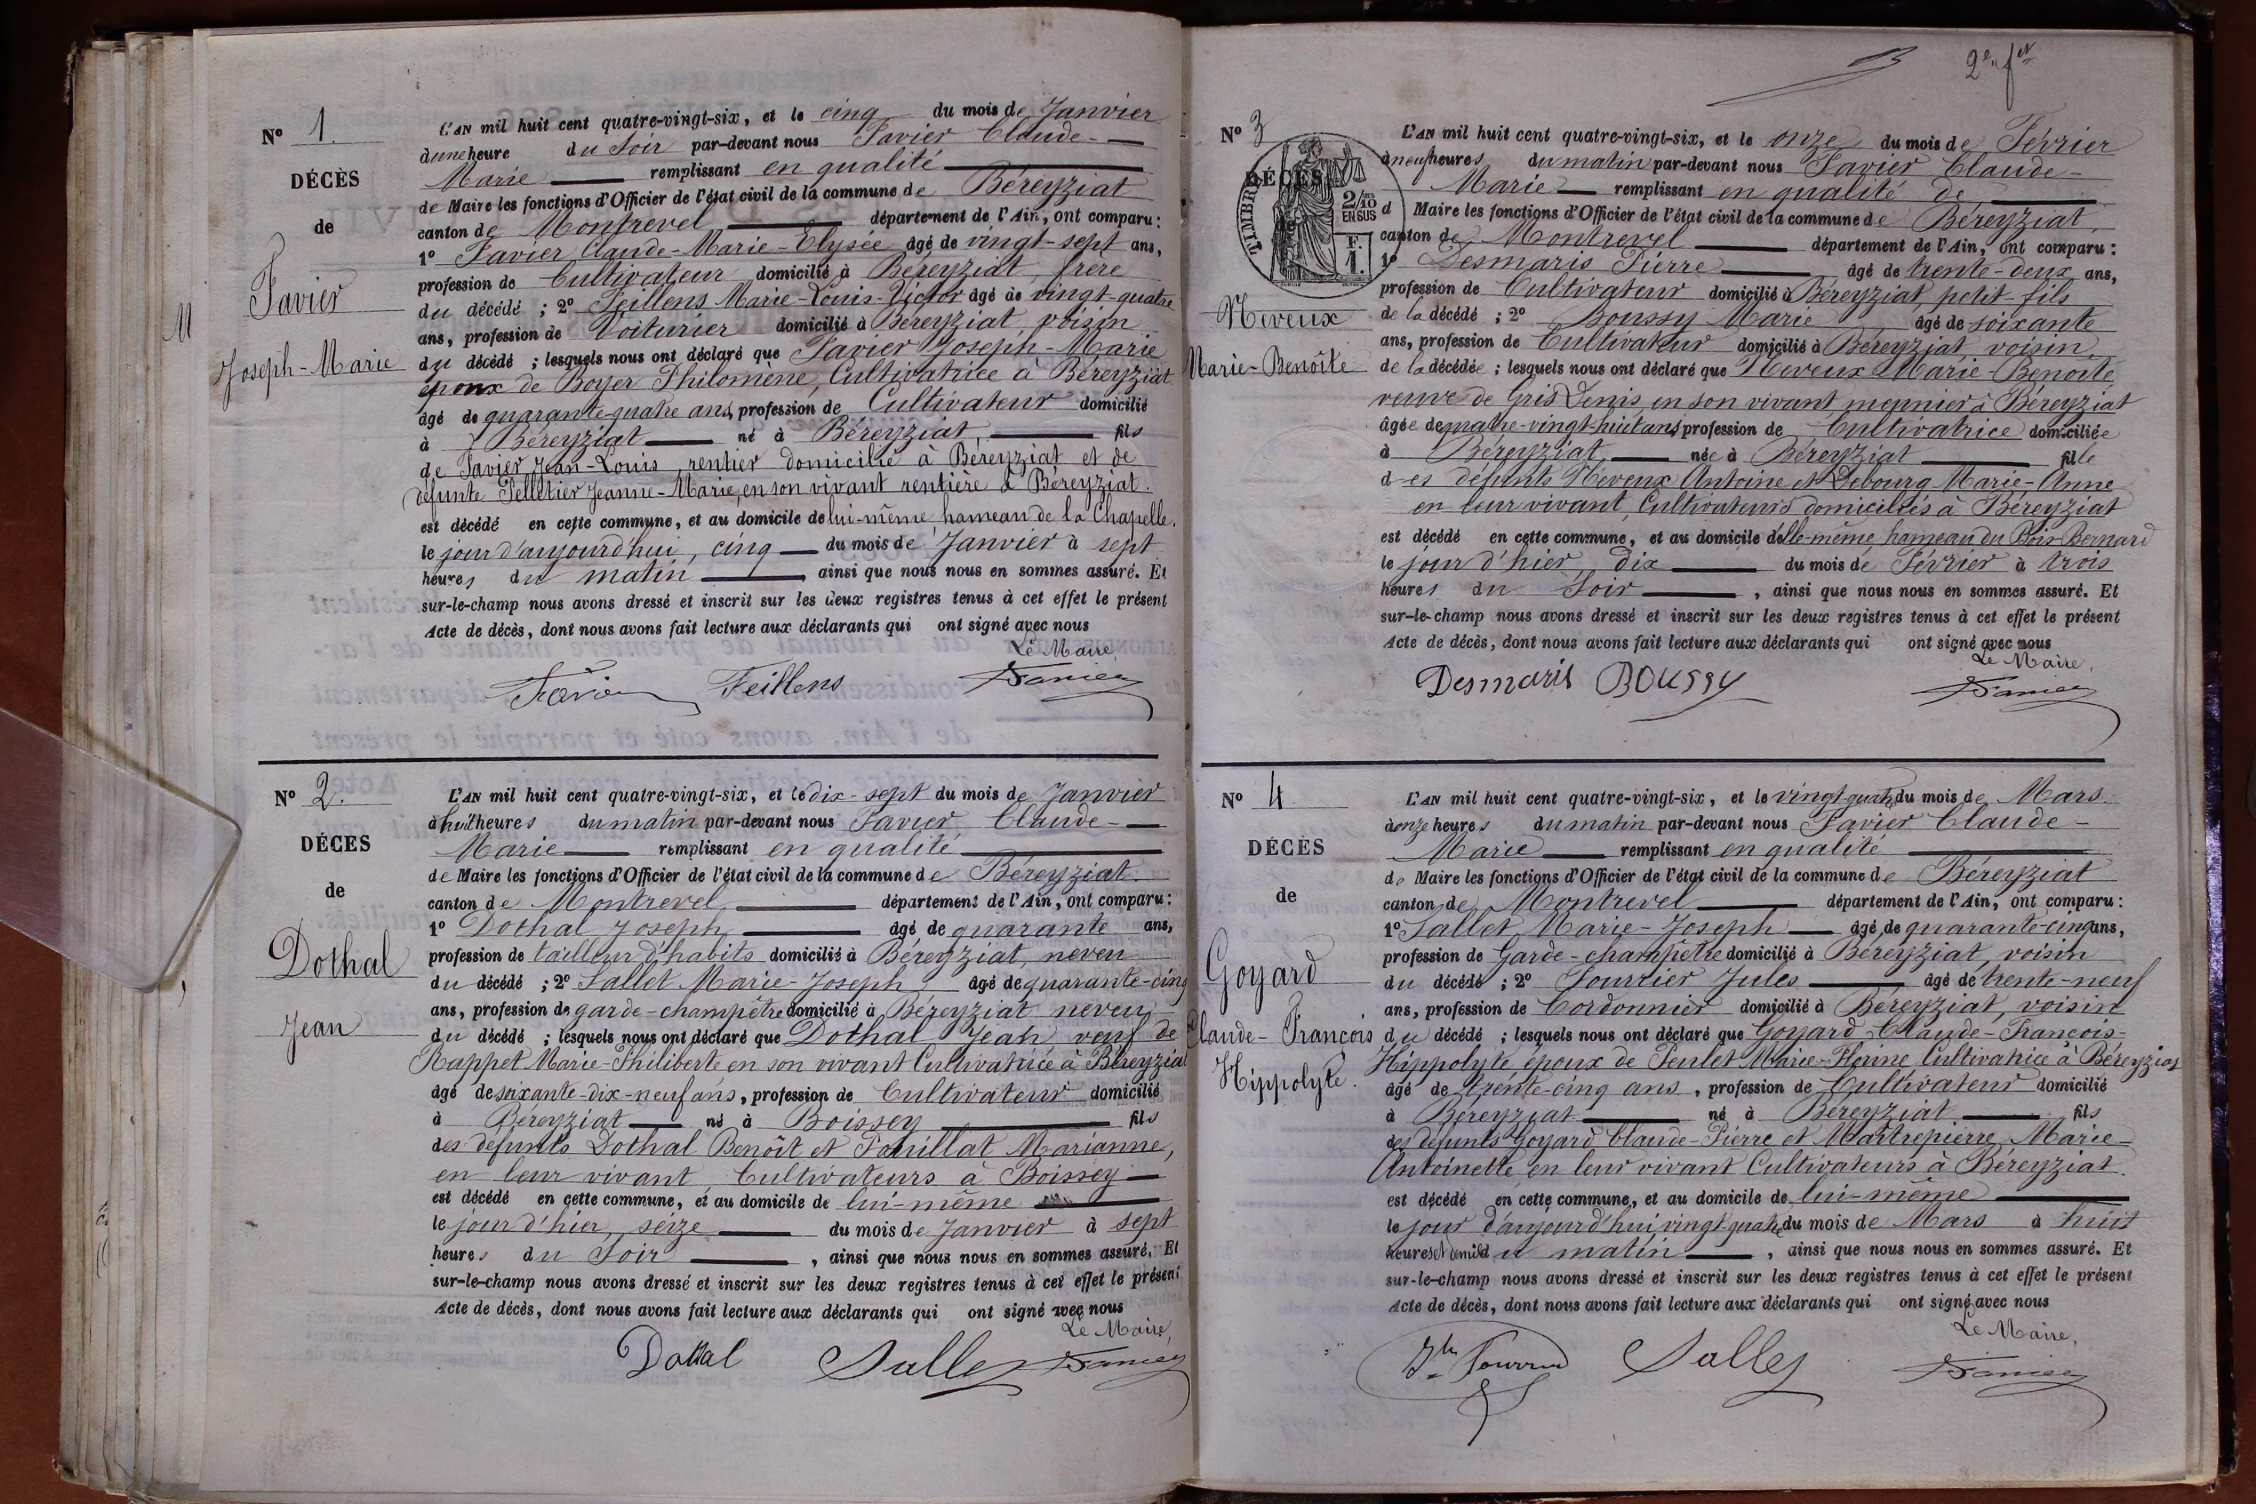 No 1.
DÉCÈS
de
Favier
M
Joseph-Marie
L'AN mil huit cent quatre-vingt-six, et le cinq du mois de Janvier
à une heure du soir par-devant nous Favier Claude-
Marie remplissant en qualité
de Maire les fonctions d'Officier de l'état civil de la commune de Béreyziat
canton de Montrevel département de l'Ain, ont comparu :
1º Favier Claude-Marie-Elysée âgé de vingt-sept ans,
profession de Cultivateur domicilié à Béreyziat, frère
du décédé ; 2º Feillens Marie-Louis-Victor âgé de vingt-quatre
ans, profession de Voiturier domicilié à Béreyziat, voisin
du décédé ; lesquels nous ont déclaré que Favier Joseph-Marie
époux de Boyer Philomène, Cultivatrice à Béreyziat
âgé de quarante-quatre ans, profession de Cultivateur domicilié
à Béreyziat né à Béreyziat, fils
de Favier Jean-Louis, rentier domicilié à Béreyziat et de
défunte Pelletier Jeanne-Marie, en son vivant rentière à Béreyziat.
est décédé en cette commune, et au domicile de lui-même, hameau de la Chapelle.
le jour d'aujourd'hui, cinq du mois de Janvier à sept
heures du matin, ainsi que nous nous en sommes assuré. Et
sur-le-champ nous avons dressé et inscrit sur les deux registres tenus à cet effet le présent
Acte de décès, dont nous avons fait lecture aux déclarants qui ont signé avec nous
Le Maire,
Favier Feillens Favier
No 2.
DÉCES
de
Dothal
Jean
L'AN mil huit cent quatre-vingt-six, et le dix-sept du mois de Janvier
à huit heures du matin par-devant nous Favier Claude-
Marie remplissant en qualité
de Maire les fonctions d'Officier de l'état civil de la commune de Béreyziat.
canton de Montrevel département de l'Ain, ont comparu :
1º Dothal Joseph âgé de quarante ans,
profession de tailleur d'habits domicilié à Béreyziat, neveu
du décédé ; 2º Sallet Marie-Joseph âgé de quarante-cinq
ans, profession de garde-champêtre domicilié à Béreyziat neveu
du décédé ; lesquels nous ont déclaré que Dothal Jean, veuf de
Rappet Marie-Philiberte en son vivant Cultivatrice à Béreyziat
âgé de soixante-dix-neuf ans, profession de Cultivateur domicilié
à Béreyziat né à Boissey fils
des défunts Dothal Benoît et Fouillat Marianne,
en leur vivant, Cultivateurs à Boissey
est décédé en cette commune, et au domicile de lui-même
le jour d'hier, seize du mois de Janvier à sept
heures du Soir, ainsi que nous nous en sommes assuré. Et
sur-le-champ nous avons dressé et inscrit sur les deux registres tenus à cet effet le présent
Acte de décès, dont nous avons fait lecture aux déclarants qui ont signé avec nous
Le Maire,
Dothal Sallet Favier
2e fet
No 3
DÉCÈS
TIMBRE
2/10
EN SUS
F.
1.
Neveux
Marie-Benoîte
L'AN mil huit cent quatre-vingt-six, et le onze du mois de Février
à neuf heures du matin par-devant nous Favier Claude-
Marie remplissant en qualité de
d Maire les fonctions d'Officier de l'état civil de la commune de Béreyziat,
canton de Montrevel département de l'Ain, ont comparu :
1º Desmaris Pierre âgé de trente-deux ans,
profession de Cultivateur domicilié à Béreyziat, petit-fils
de la décédé ; 2º Boussy Marie âgé de soixante
ans, profession de Cultivateur domicilié à Béreyziat, voisin,
de la décédée ; lesquels nous ont déclaré que Neveux Marie-Benoîte
veuve de Gris Denis, en son vivant, meunier à Béreyziat
âgée de quatre-vingt-huit ans, profession de Cultivatrice domiciliée
à Béreyziat, née à Béreyziat fille
des défunts Neveux Antoine et Debourg Marie-Anne
en leur vivant, Cultivateurs domiciliés à Béreyziat
est décédé en cette commune, et au domicile d'elle-même hameau du Bois-Bernard
le jour d'hier, dix du mois de Février à trois
heures du Soir, ainsi que nous nous en sommes assuré. Et
sur-le-champ nous avons dressé et inscrit sur les deux registres tenus à cet effet le présent
Acte de décès, dont nous avons fait lecture aux déclarants qui ont signé avec nous
Le Maire,
Desmaris BOUSSY Favier
No 4
DÉCÈS
de
Goyard
Claude-François
Hippolyte.
L'AN mil huit cent quatre-vingt-six, et le vingt-quatre du mois de Mars
à onze heures du matin par-devant nous Favier Claude-
Marie remplissant en qualité
de Maire les fonctions d'Officier de l'état civil de la commune de Béreyziat
canton de Montrevel département de l'Ain, ont comparu :
1º Sallet, Marie-Joseph âgé de quarante-cinq ans,
profession de Garde-champêtre domicilié à Béreyziat, voisin
du décédé ; 2º Fourrier Jules âgé de trente-neuf
ans, profession de Cordonnier domicilié à Béreyziat, voisin
du décédé ; lesquels nous ont déclaré que Goyard Claude-François-
Hippolyte époux de Penlet Marie-Florine Cultivatrice à Béreyziat
âgé de trente-cinq ans, profession de Cultivateur domicilié
à Béreyziat né à Béreyziat fils
des défunts Goyard Claude-Pierre et Martrepierre Marie-
Antoinette en leur vivant Cultivateurs à Béreyziat.
est décédé en cette commune, et au domicile de lui-même
le jour d'aujourd'hui vingt-quatre du mois de Mars à huit
heures et demie du matin, ainsi que nous nous en sommes assuré. Et
sur-le-champ nous avons dressé et inscrit sur les deux registres tenus à cet effet le présent
Acte de décès, dont nous avons fait lecture aux déclarants qui ont signé avec nous
Le Maire,
Sallet Favier